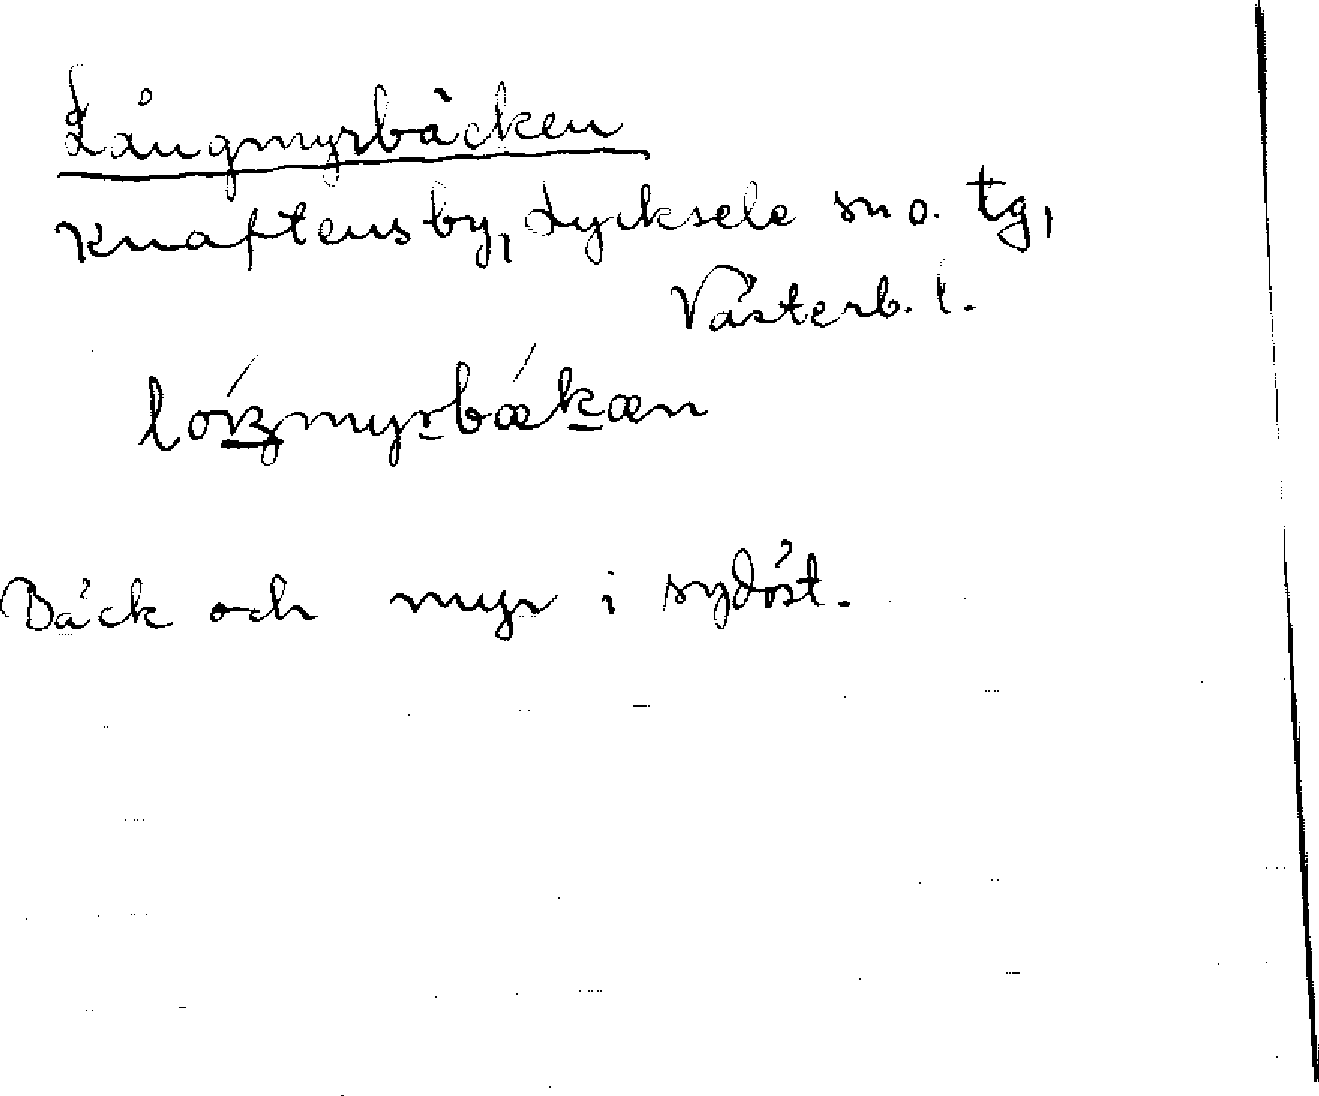 Långmyrbäcken
Knaftens by, Lycksele sn o. tg,
Västerb. l.
loŋmyrbækæn
Bäck och myr i sydöst.